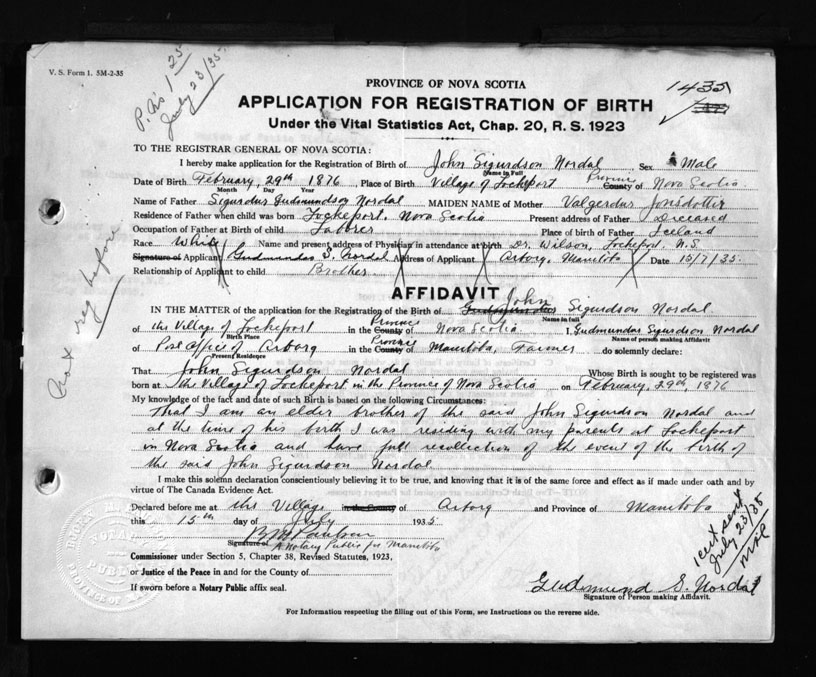 V. S. Form 1. 5M-2-35
P. No 1 25
July 23/35
1435
PROVINCE OF NOVA SCOTIA
APPLICATION FOR REGISTRATION OF BIRTH
Under the Vital Statistics Act, Chap. 20, R. S. 1923
TO THE REGISTRAR GENERAL OF NOVA SCOTIA:
I hereby make application for the Registration of Birth of John Sigurdson Nordal Sex Male
Name in Full
Date of Birth February, 29th 1876 Place of Birth Village of Lockeport Province County of Nova Scotia
Month Day Year
Name of Father Sigurdur Gudmundson Nordal MAIDEN NAME of Mother Valgerdur Jonsdottir
Residence of Father when child was born Lockeport. Nova Scotia Present address of Father Deceased
Occupation of Father at Birth of child Laborer Place of birth of Father Iceland
Race White Name and present address of Physician in attendance at birth Dr. Wilson, Lockeport. N.S.
Signature of Applicant Gudmundas S. Nordal Address of Applicant Arborg, Manitoba Date 15/7/35.
Relationship of Applicant to child Brother
not reg before
AFFIDAVIT
IN THE MATTER of the application for the Registration of the Birth of John Sigurdson Nordal
Name in full
of the Village of Lockeport in the Province County of Nova Scotia I, Gudmundur Sigurdson Nordal
Birth Place Name of person making Affidavit
of Post Office of Arborg in the Province County of Manitoba, Farmer do solemnly declare:
Present Residence
That John Sigurdson Nordal Whose Birth is sought to be registered was
born at the Village of Lockeport in the Province of Nova Scotia on February, 29th, 1876
My knowledge of the fact and date of such Birth is based on the following Circumstances:
That I am an elder brother of the said John Sigurdson Nordal and
at the time of his birth I was residing with my parents at Lockeport
in Nova Scotia and have full recollection of the event of the birth of
the said John Sigurdson Nordal
I make this solemn declaration conscientiously believing it to be true, and knowing that it is of the same force and effect as if made under oath and by
virtue of The Canada Evidence Act.
Declared before me at the Village in the County of Arborg and Province of Manitoba
this 15th day of July 1935
A Notary Public for Manitoba
Signature of
Commissioner under Section 5, Chapter 38, Revised Statutes, 1923,
or Justice of the Peace in and for the County of
If sworn before a Notary Public affix seal.
1 cert sent
July 23/35
Gudmund S. Nordal
Signature of Person making Affidavit.
For Information respecting the filling out of this Form, see Instructions on the reverse side.